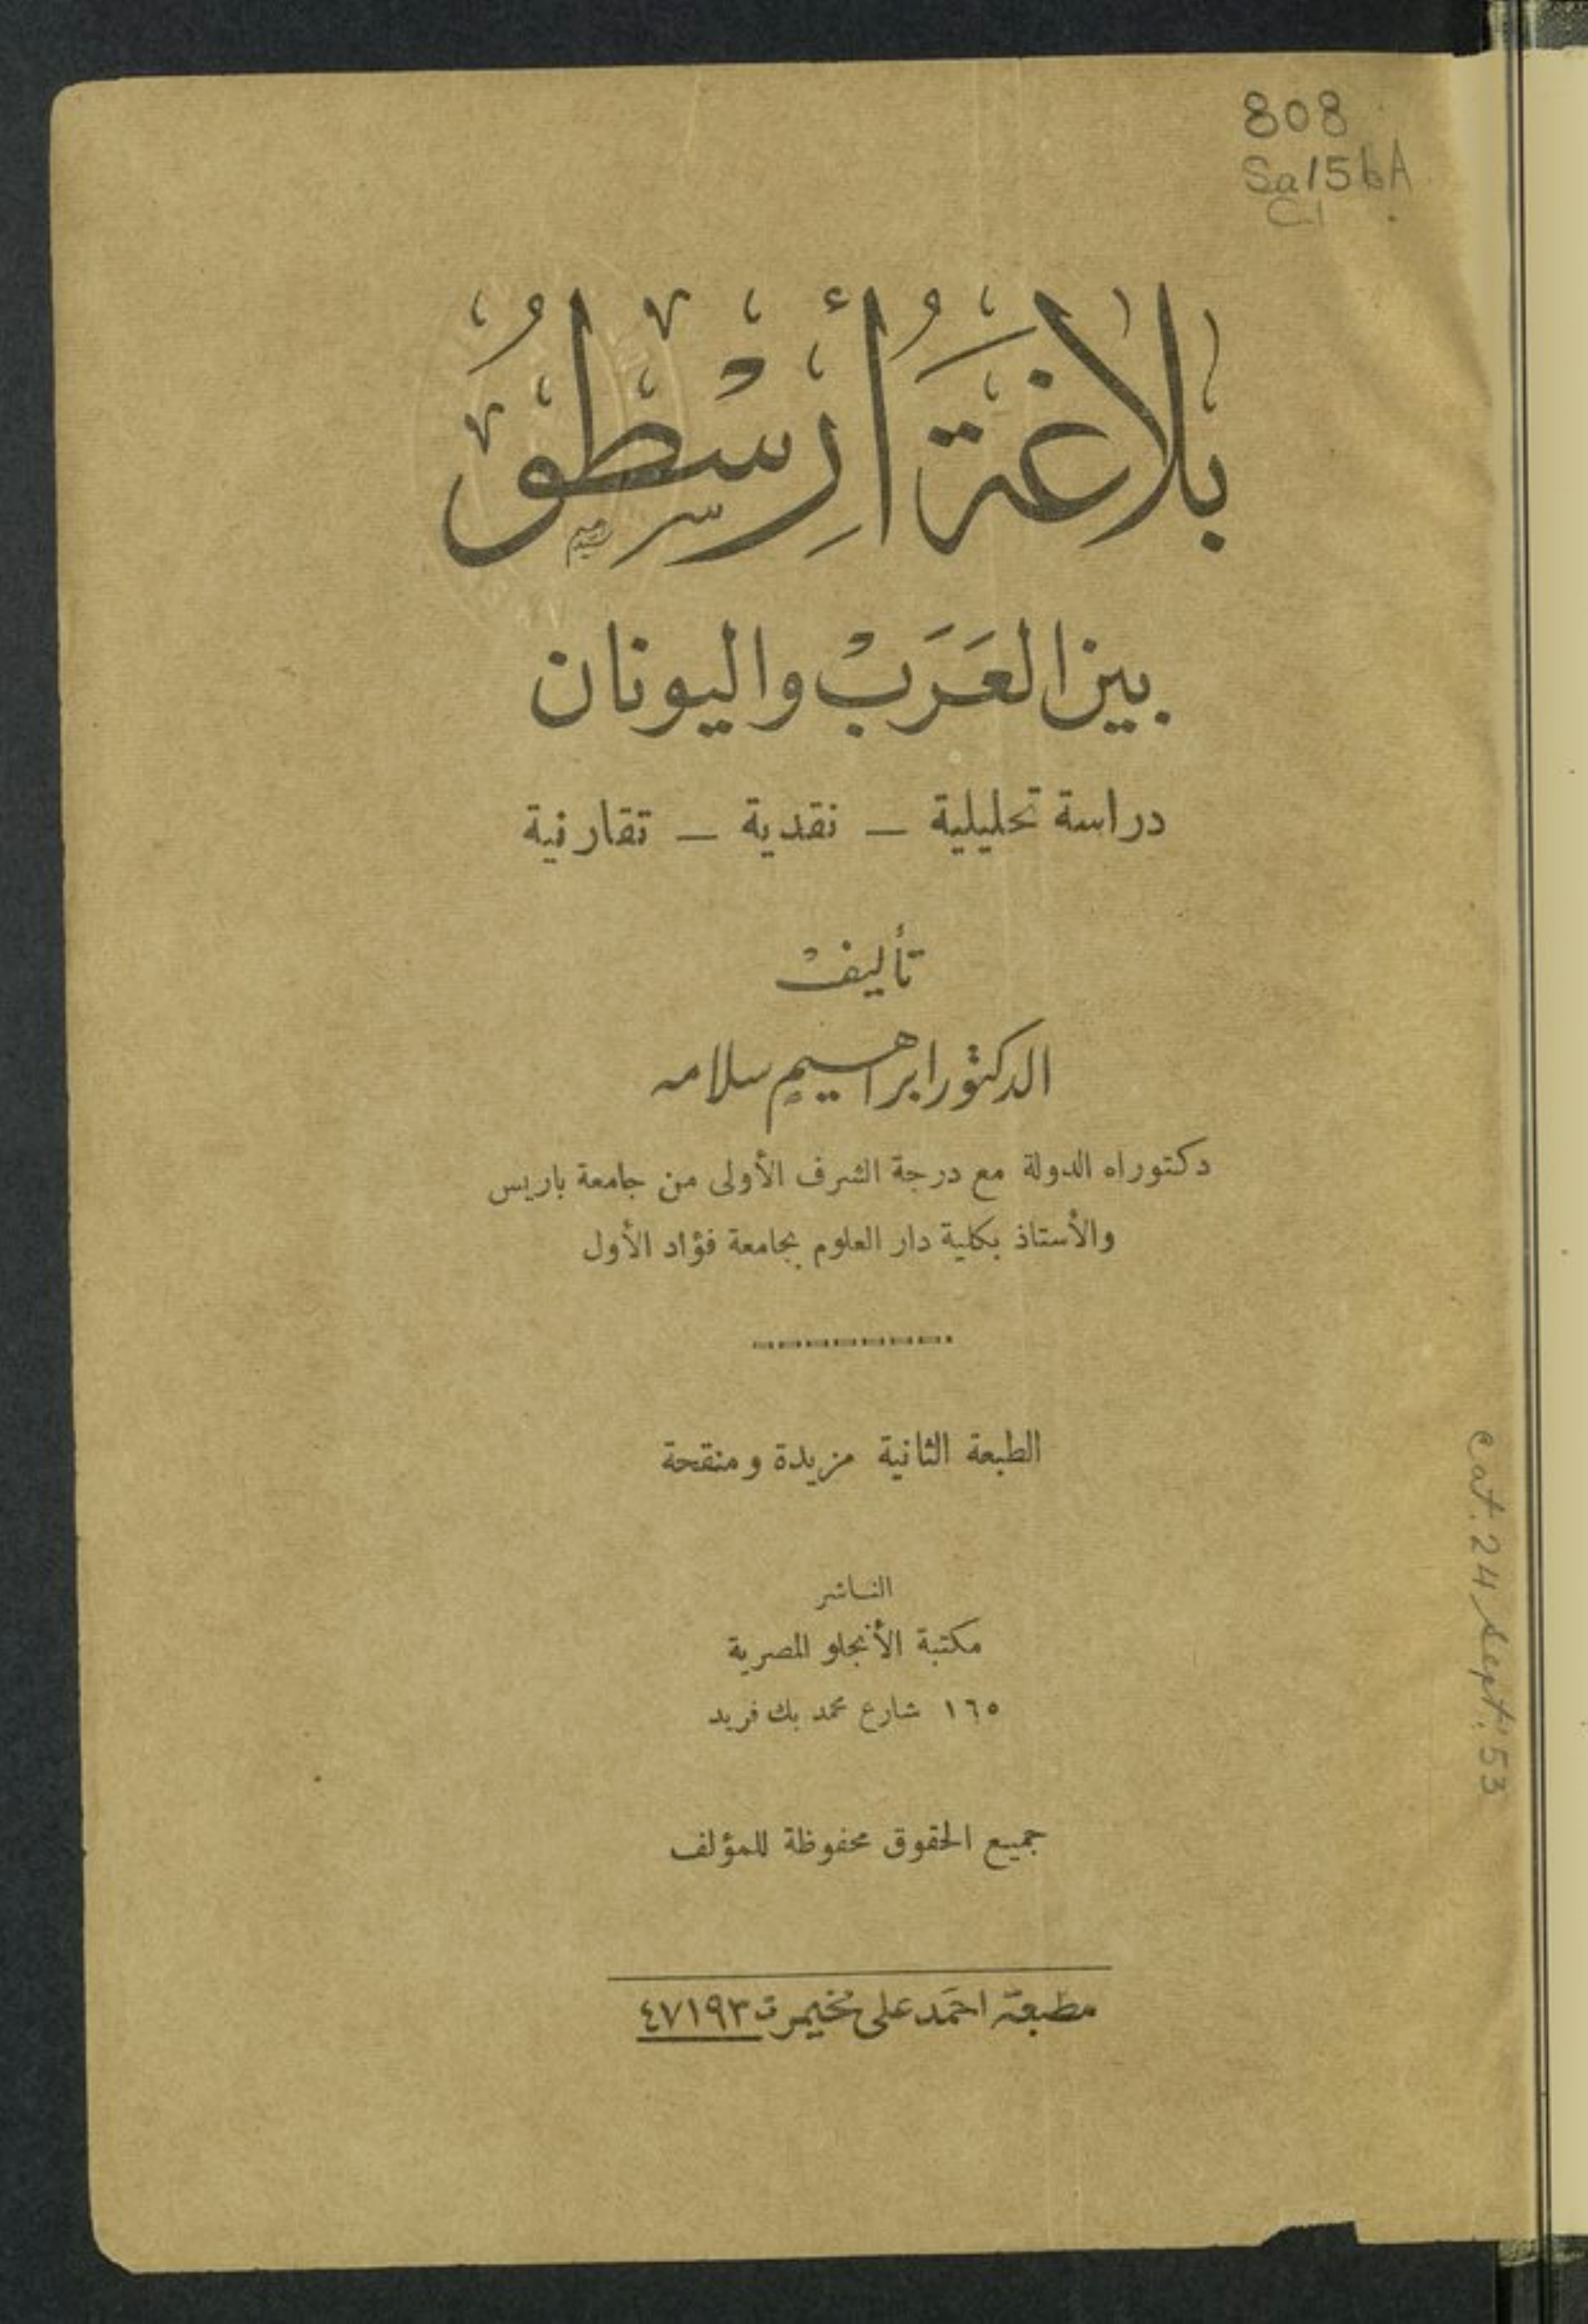 808
Sa156A
C.1
بلاغة أرسطو
بين العرب واليونان
دراسة تحليلية — نقدية — تقارنية
تأليف
الدكتور ابراهيم سلامه
دكتوراه الدولة مع درجة الشرف الأولى من جامعة باريس
والأستاذ بكلية دار العلوم بجامعة فؤاد الأول
الطبعة الثانية مزيدة ومنقحة
الناشر
مكتبة الأنجلو المصرية
١٦٥ شارع محمد بك فريد
جميع الحقوق محفوظة للمؤلف
مطبعة احمد على مخيمر ت ٤٧١٩٣
cat. 24 sept. '53